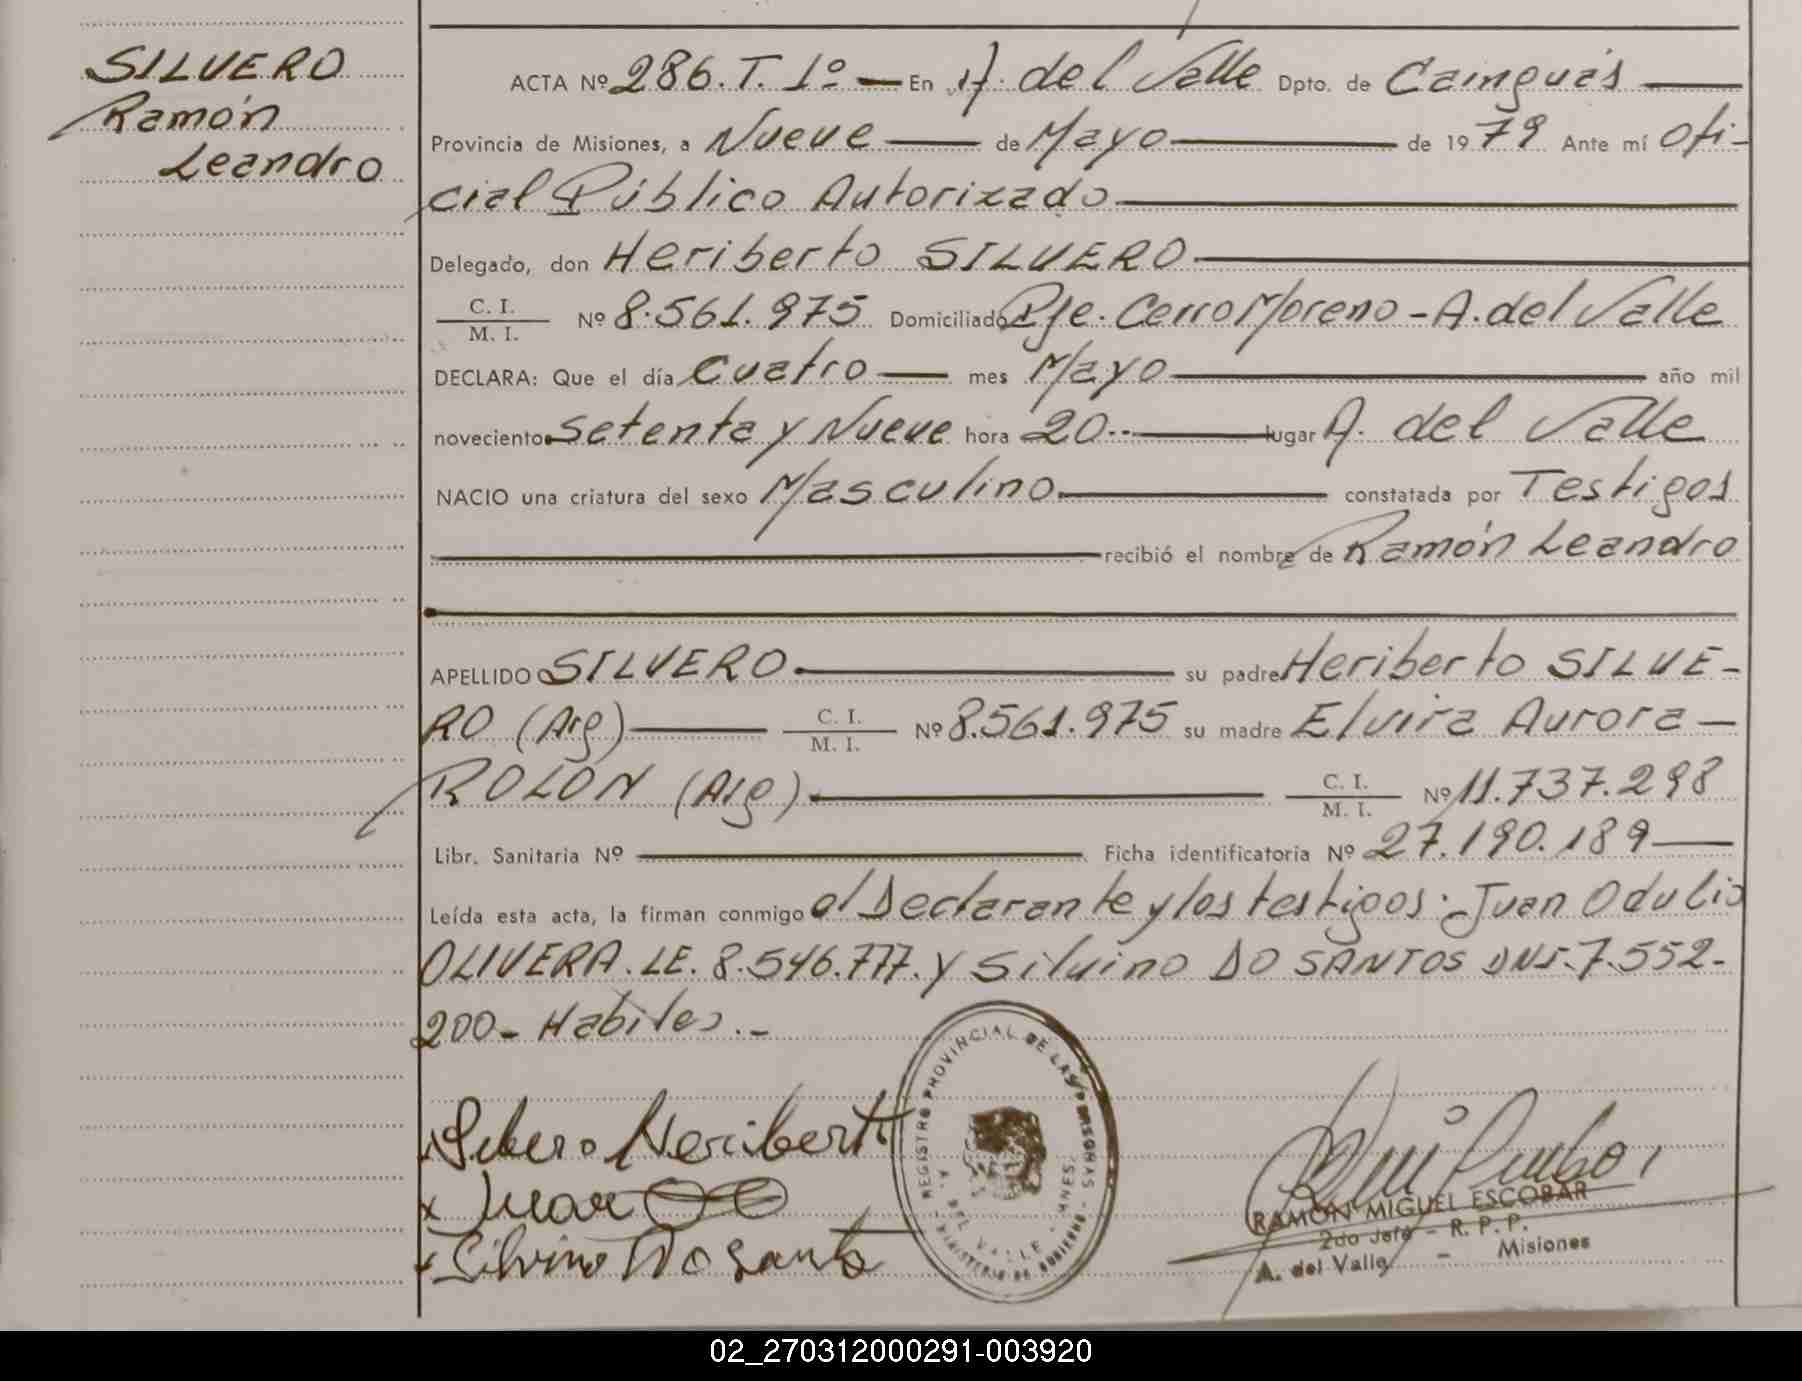 SILVERO
Ramón
Leandro
ACTA Nº 286. T. 1º — En A. del Valle Dpto. de Cainguás
Provincia de Misiones, a Nueve — de Mayo — de 1979 Ante mí Ofi-
cial Público Autorizado
Delegado, don Heriberto SILVERO
C. I.
M. I. Nº 8.561.975 Domiciliado Pje. Cerro Moreno - A. del Valle
DECLARA: Que el día cuatro — mes Mayo — año mil
novecientos setenta y Nueve hora 20.. — lugar A. del Valle
NACIO una criatura del sexo Masculino — constatada por Testigos
— recibió el nombre de Ramón Leandro
APELLIDO SILVERO — su padre Heriberto SILVE-
RO (Arg) — C. I. M. I. Nº 8.561.975 su madre Elvira Aurora —
ROLON (Arg) — C. I. M. I. Nº 11.737.298
Libr. Sanitaria Nº — Ficha identificatoria Nº 27.190.189 —
Leída esta acta, la firman conmigo el Declarante y los testigos: Juan Odulio
OLIVERA. LE. 8.546.777. y Silvino DO SANTOS DNI. 7.552-
200 - Habiles. -
Silvero Heriberto
x Juan
x Silvino Do Santo
REGISTRO PROVINCIAL DE LAS PERSONAS
A. DEL VALLE - MNES.
MINISTERIO DE GOBIERNO
RAMON MIGUEL ESCOBAR
2do Jefe - R. P. P.
A. del Valle - Misiones
02_270312000291-003920